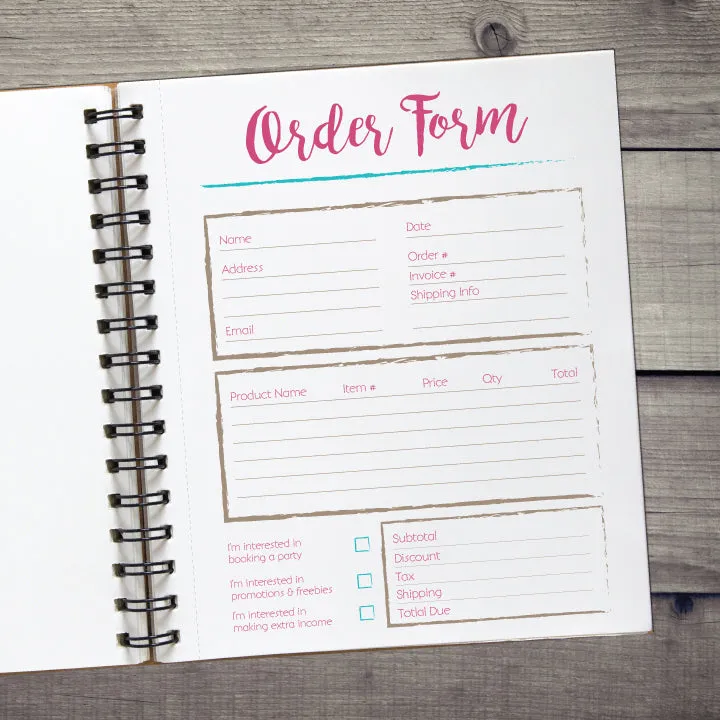 Order Form
Name
Date
Address
Order #
Invoice #
Shipping Info
Email
Product Name Item # Price Qty Total
I'm interested in
booking a party
I'm interested in
promotions & freebies
I'm interested in
making extra income
Subtotal
Discount
Tax
Shipping
Totial Due